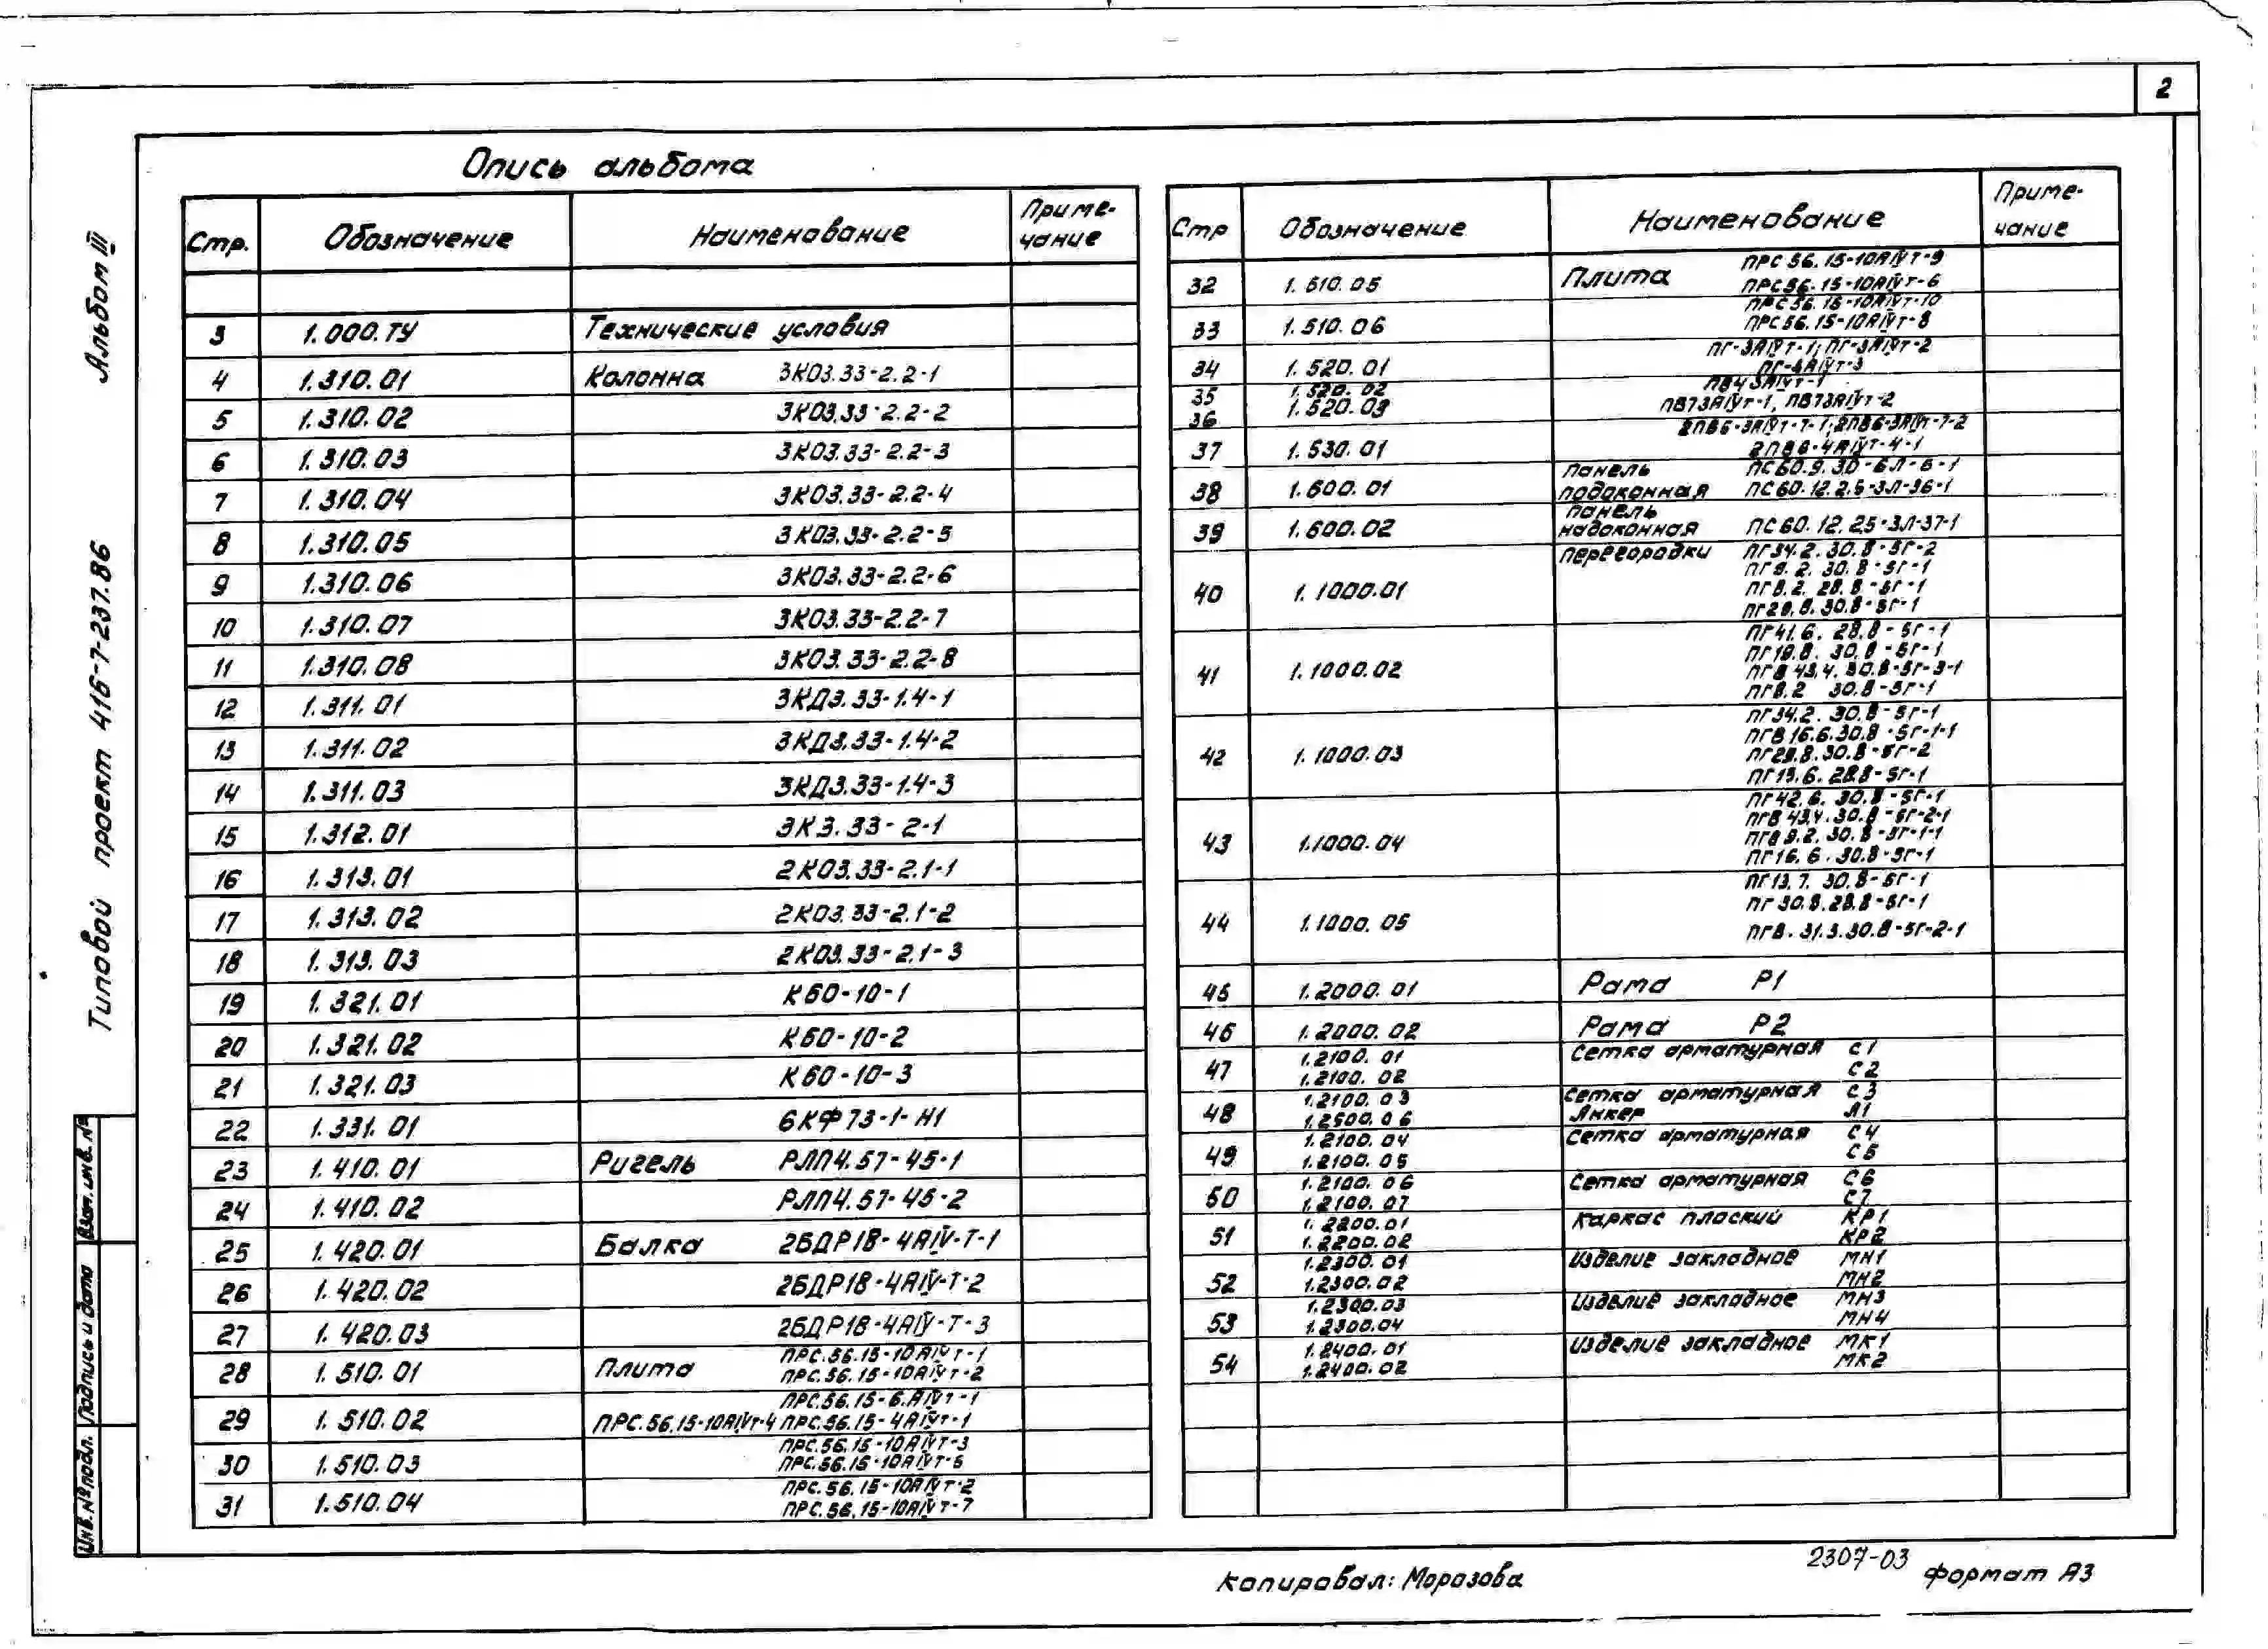 2
Альбом III
Типовой проект 416-7-237.86
Взам. инв. №
Подпись и дата
Инв. № подл.
Опись альбома
Стр. Обозначение Наименование Приме-
чание
3 1.000.ТУ Технические условия
4 1.310.01 Колонна 3КО3.33-2.2-1
5 1.310.02 3КО3.33-2.2-2
6 1.310.03 3КО3.33-2.2-3
7 1.310.04 3КО3.33-2.2-4
8 1.310.05 3КО3.33-2.2-5
9 1.310.06 3КО3.33-2.2-6
10 1.310.07 3КО3.33-2.2-7
11 1.310.08 3КО3.33-2.2-8
12 1.311.01 3КД3.33-1.4-1
13 1.311.02 3КД3.33-1.4-2
14 1.311.03 3КД3.33-1.4-3
15 1.312.01 3К3.33-2-1
16 1.313.01 2КО3.33-2.1-1
17 1.313.02 2КО3.33-2.1-2
18 1.313.03 2КО3.33-2.1-3
19 1.321.01 К60-10-1
20 1.321.02 К60-10-2
21 1.321.03 К60-10-3
22 1.331.01 6КФ73-1-Н1
23 1.410.01 Ригель РЛП4.57-45-1
24 1.410.02 РЛП4.57-45-2
25 1.420.01 Балка 2БДР18-4АIV-Т-1
26 1.420.02 2БДР18-4АIV-Т-2
27 1.420.03 2БДР18-4АIV-Т-3
28 1.510.01 Плита ПРС.56.15-10АIVТ-1
ПРС.56.15-10АIVТ-2
29 1.510.02 ПРС.56.15-6.АIVТ-1
ПРС.56.15-10АIVТ-4 ПРС.56.15-4АIVТ-1
30 1.510.03 ПРС.56.15-10АIVТ-3
ПРС.56.15-10АIVТ-5
31 1.510.04 ПРС.56.15-10АIVТ-2
ПРС.56.15-10АIVТ-7
Стр Обозначение Наименование Приме-
чание
32 1.510.05 Плита ПРС56.15-10АIVТ-9
ПРС56.15-10АIVТ-6
33 1.510.06 ПРС56.15-10АIVТ-10
ПРС56.15-10АIVТ-8
34 1.520.01 ПГ-3АIVТ-1; ПГ-3АIVТ-2
ПГ-4АIVТ-3
35 1.520.02 ПВ43АIVТ-1
36 1.520.03 ПВ73АIVТ-1, ПВ73АIVТ-2
37 1.530.01 2ПВ6-3АIVТ-7-1; 2ПВ6-3АIVТ-7-2
2ПВ6-4АIVТ-4-1
38 1.600.01 Панель ПС60.9.3,0-6Л-6-1
подоконная ПС60.12.2.5-3Л-36-1
39 1.600.02 Панель
надоконная ПС60.12.2.5-3Л-37-1
40 1.1000.01 Перегородки ПГ34.2.30.8-5Г-2
ПГ9.2.30.8-5Г-1
ПГ8.2.28.8-5Г-1
ПГ29.8.30.8-5Г-1
41 1.1000.02 ПГ41.6.28.8-5Г-1
ПГ19.8.30.8-5Г-1
ПГВ43.4.30.8-5Г-3-1
ПГ8.2 30.8-5Г-1
42 1.1000.03 ПГ34.2.30.8-5Г-1
ПГВ16.6.30.8-5Г-1-1
ПГ29.8.30.8-5Г-2
ПГ13.6.28.8-5Г-1
43 1.1000.04 ПГ42.6.30.8-5Г-1
ПГВ43.4.30.8-5Г-2-1
ПГВ9.2.30.8-5Г-1-1
ПГ16.6.30.8-5Г-1
44 1.1000.05 ПГ13.7.30.8-5Г-1
ПГ30.8.28.8-5Г-1
ПГВ.31.3.30.8-5Г-2-1
45 1.2000.01 Рама Р1
46 1.2000.02 Рама Р2
47 1.2100.01 Сетка арматурная С1
1.2100.02 С2
48 1.2100.03 Сетка арматурная С3
1.2500.06 Анкер А1
49 1.2100.04 Сетка арматурная С4
1.2100.05 С5
50 1.2100.06 Сетка арматурная С6
1.2100.07 С7
51 1.2200.01 Каркас плоский КР1
1.2200.02 КР2
52 1.2300.01 Изделие закладное МН1
1.2300.02 МН2
53 1.2300.03 Изделие закладное МН3
1.2300.04 МН4
54 1.2400.01 Изделие закладное МК1
1.2400.02 МК2
Копировал: Морозова
2307-03
формат А3